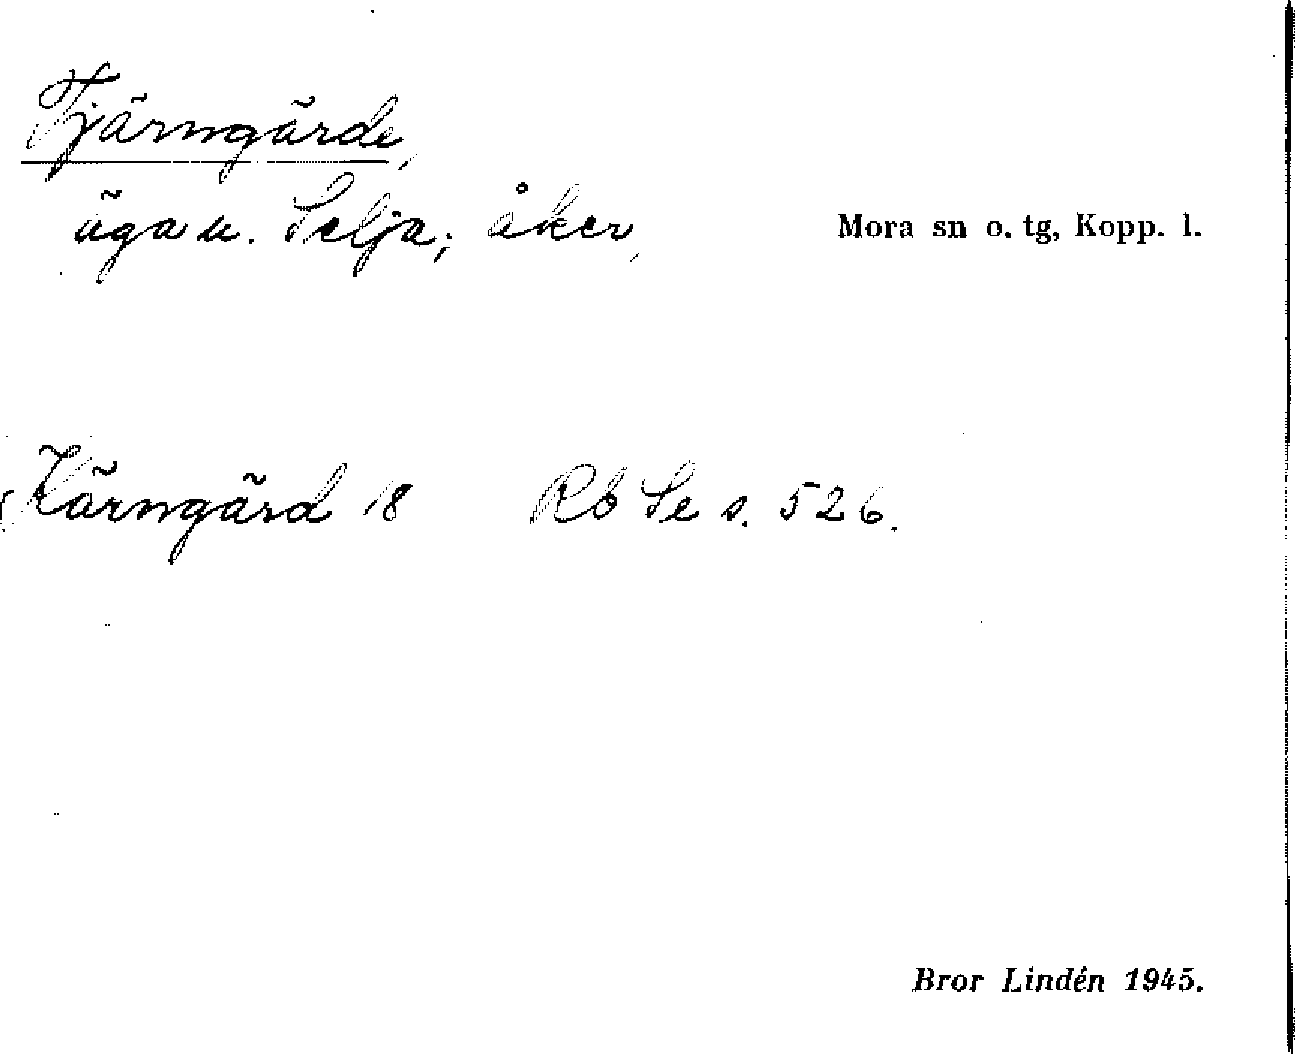 Tjärngärde,
äga u. Selja; åker,
Mora sn o. tg, Kopp. l.
Kärngärd 18 Rb Se s. 526.
Bror Lindén 1945.